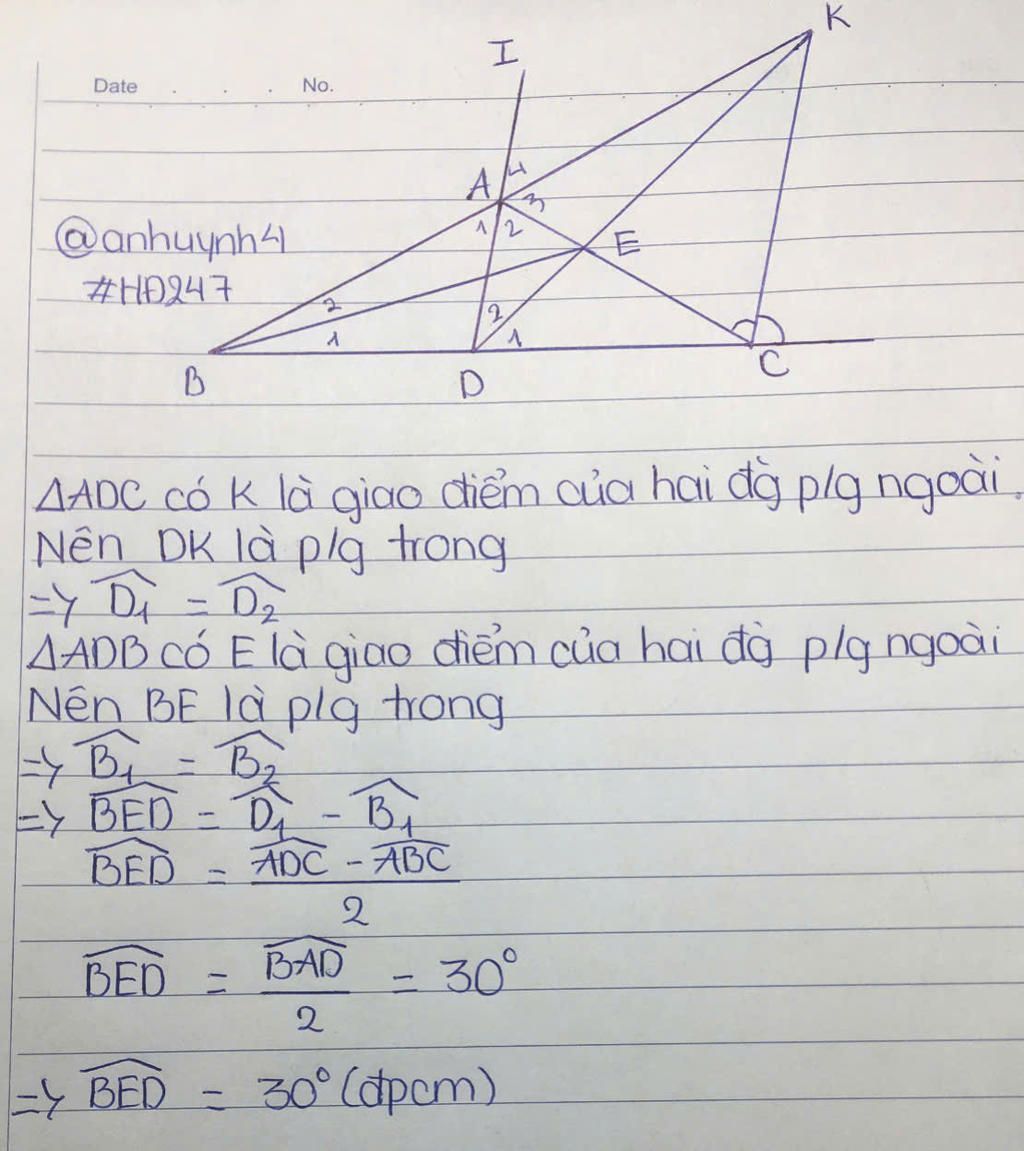 K
I
Date . . . No.
A 4
3
1 2
@anhuynh41
#HĐ247
E
2
1
2
1
B
D
C
ΔADC có K là giao điểm của hai đg̀ p/g ngoài.
Nên DK là p/g trong
=> D̂₁ = D̂₂
ΔADB có E là giao điểm của hai đg̀ p/g ngoài
Nên BE là p/g trong
=> B̂₁ = B̂₂
=> B͡ED = D̂₁ - B̂₁
B͡ED = (A͡DC - A͡BC)/2
B͡ED = B͡AD/2 = 30°
=> B͡ED = 30° (đpcm)